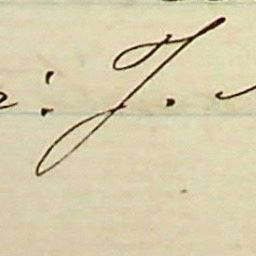 : J.